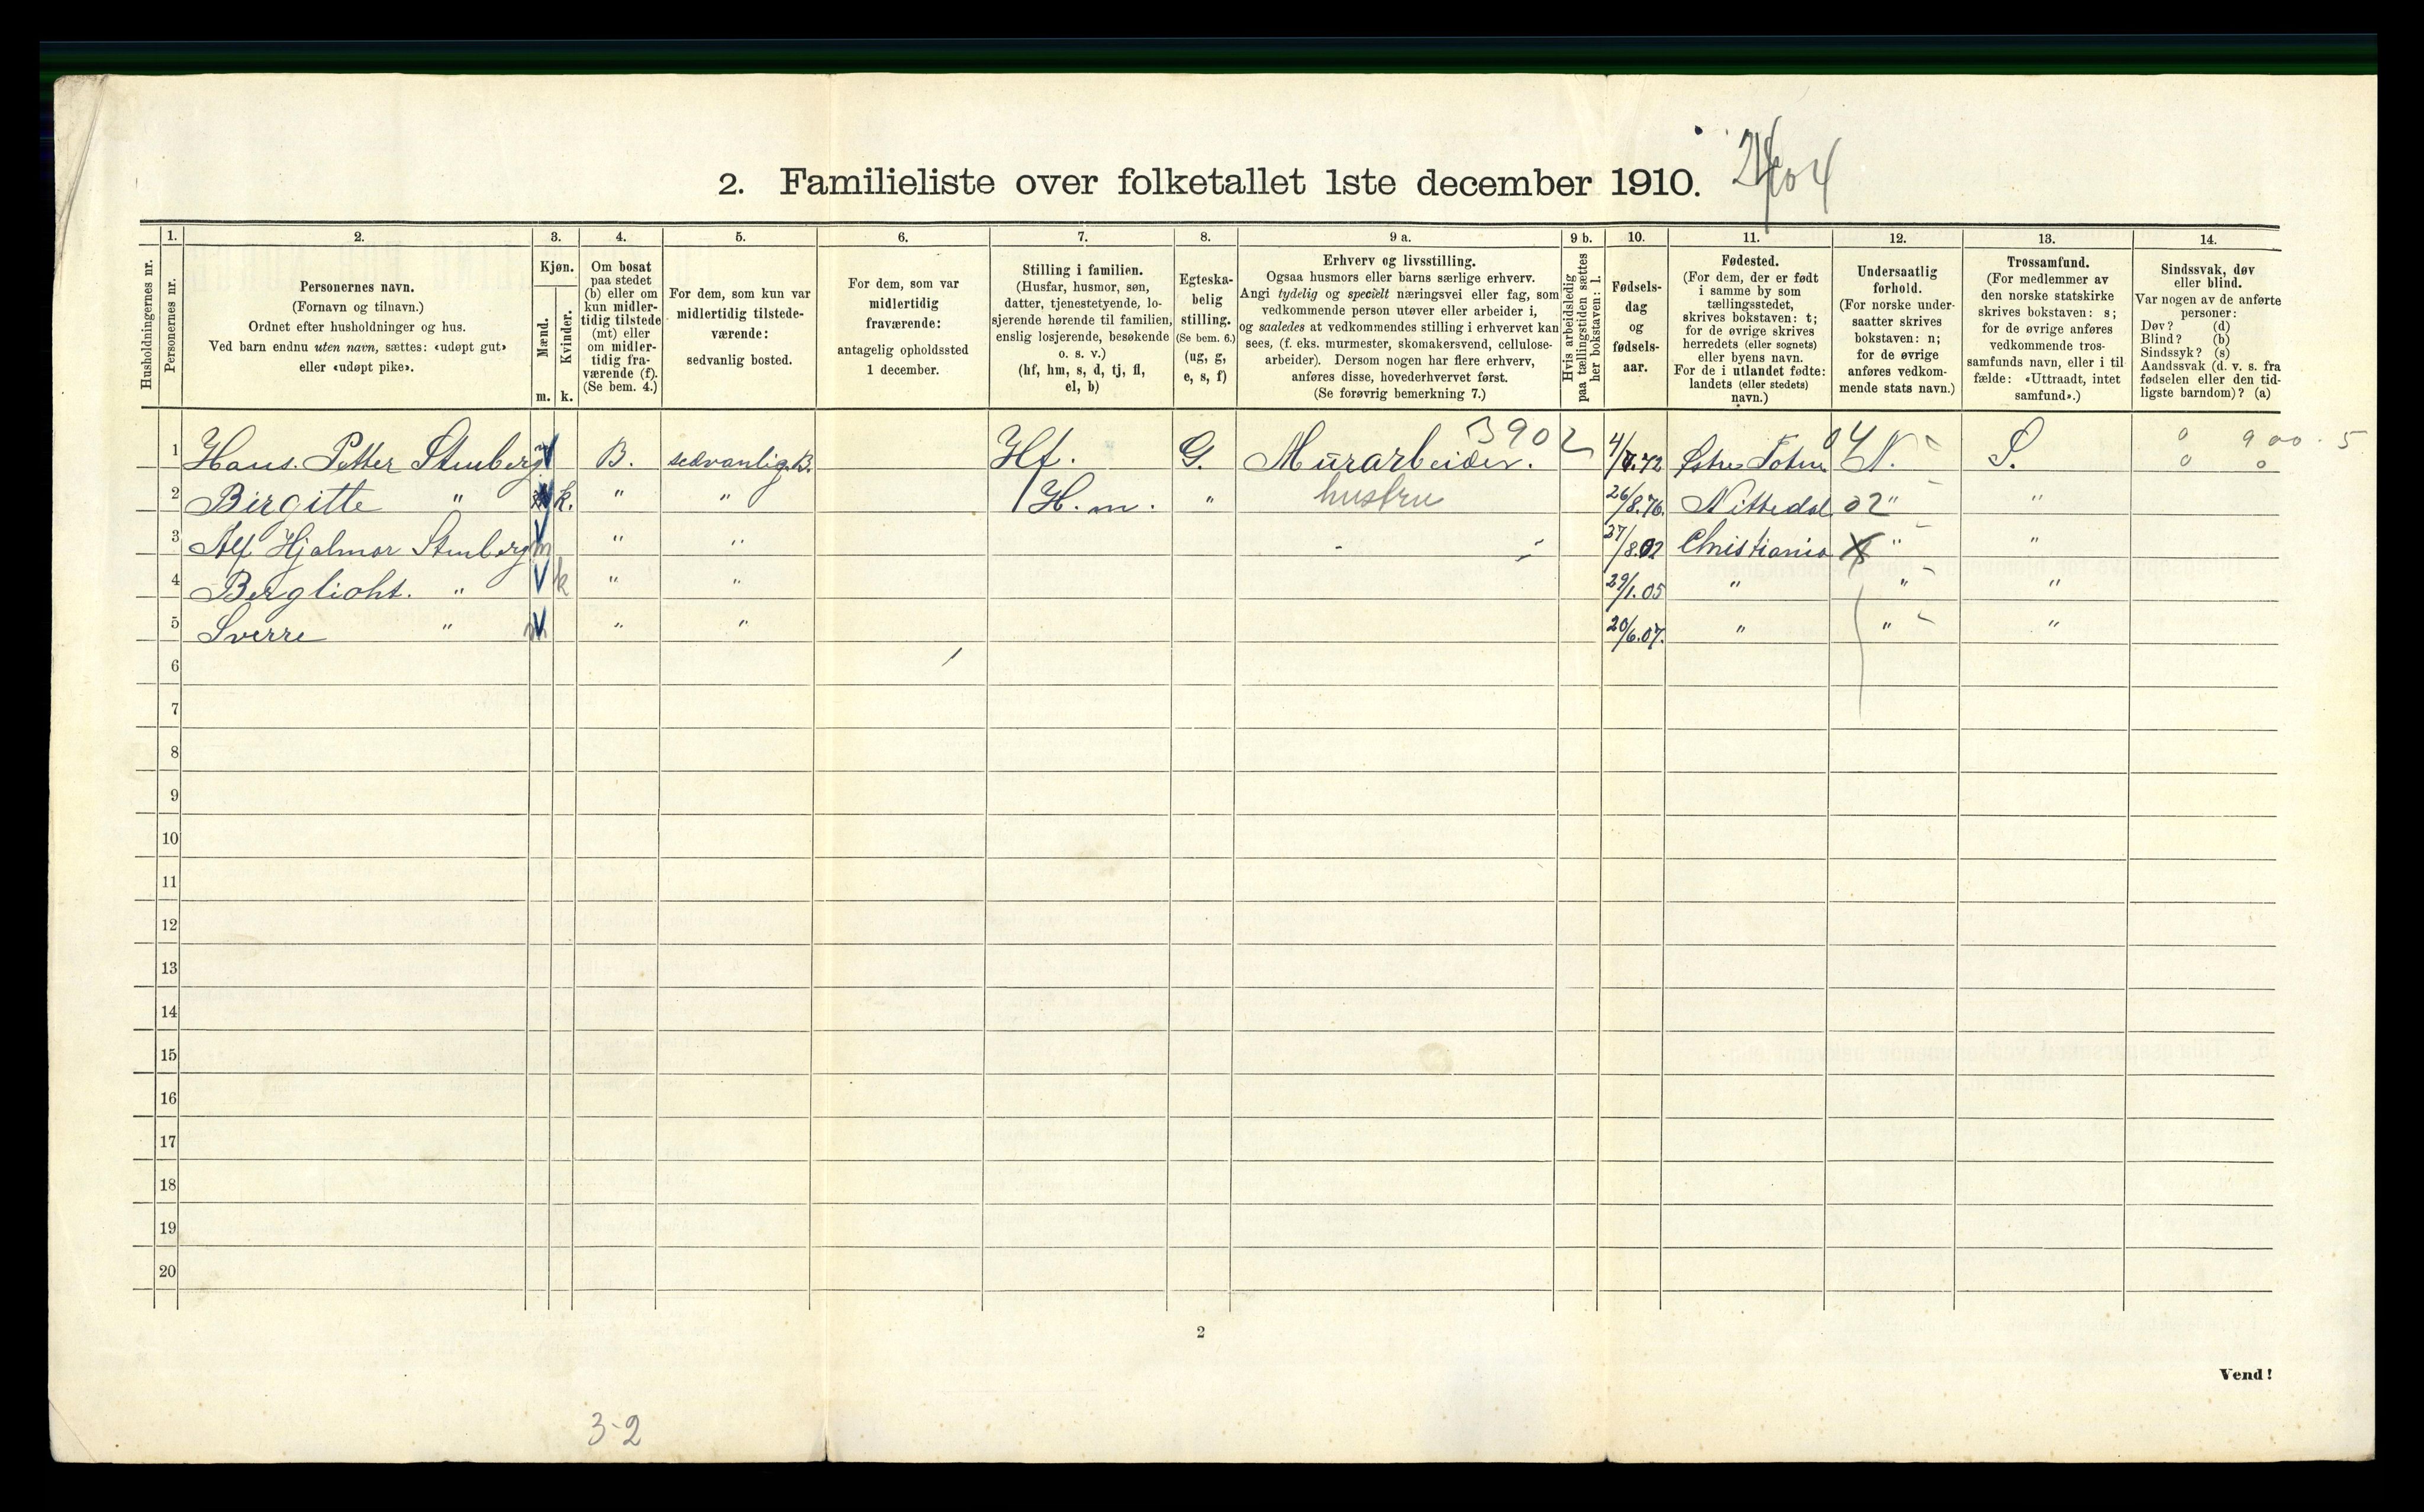 2. Familieliste over folketallet 1ste december 1910.
Husholdningernes nr.
1. Personernes nr.
2. Personernes navn.
(Fornavn og tilnavn.)
Ordnet efter husholdninger og hus.
Ved barn endnu uten navn, sættes: «udøpt gut»
eller «udøpt pike».
3. Kjøn.
Mænd. m.
Kvinder. k.
4. Om bosat
paa stedet
(b) eller om
kun midler-
tidig tilstede
(mt) eller
om midler-
tidig fra-
værende (f).
(Se bem. 4.)
5. For dem, som kun var
midlertidig tilstede-
værende:
sedvanlig bosted.
6. For dem, som var
midlertidig
fraværende:
antagelig opholdssted
1 december.
7. Stilling i familien.
(Husfar, husmor, søn,
datter, tjenestetyende, lo-
sjerende hørende til familien,
enslig losjerende, besøkende
o. s. v.)
(hf, hm, s, d, tj, fl,
el, b)
8. Egteska-
belig
stilling.
(Se bem. 6.)
(ug, g,
e, s, f)
9 a. Erhverv og livsstilling.
Ogsaa husmors eller barns særlige erhverv.
Angi tydelig og specielt næringsvei eller fag, som
vedkommende person utøver eller arbeider i,
og saaledes at vedkommendes stilling i erhvervet kan
sees, (f. eks. murmester, skomakersvend, cellulose-
arbeider). Dersom nogen har flere erhverv,
anføres disse, hovederhvervet først.
(Se forøvrig bemerkning 7.)
9 b. Hvis arbeidsledig
paa tællingstiden sættes
her bokstaven: l.
10. Fødsels-
dag
og
fødsels-
aar.
11. Fødested.
(For dem, der er født
i samme by som
tællingsstedet,
skrives bokstaven: t;
for de øvrige skrives
herredets (eller sognets)
eller byens navn.
For de i utlandet fødte:
landets (eller stedets)
navn.)
12. Undersaatlig
forhold.
(For norske under-
saatter skrives
bokstaven: n;
for de øvrige
anføres vedkom-
mende stats navn.)
13. Trossamfund.
(For medlemmer av
den norske statskirke
skrives bokstaven: s;
for de øvrige anføres
vedkommende tros-
samfunds navn, eller i til-
fælde: «Uttraadt, intet
samfund».)
14. Sindssvak, døv
eller blind.
Var nogen av de anførte
personer:
Døv? (d)
Blind? (b)
Sindssyk? (s)
Aandssvak (d. v. s. fra
fødselen eller den tid-
ligste barndom)? (a)
1 Hans. Petter Stenberg m B. sedvanlig.B. Hf. G. Murarbeider. 3902 72 Østre Toten 04 N. S. 0 900. 5
2 Birgitte " k. " " H. m. " hustru 26/8.76. Nittedal 02 " "
3 Alf Hjalmar Stenberg m " " 8.02 Christiania " "
4 Berglioht. " k " " 29/1.05 " " "
5 Sverre " m " " 20/6.07. " " "
6
7
8
9
10
11
12
13
14
15
16
17
18
19
20
2
Vend!
3-2